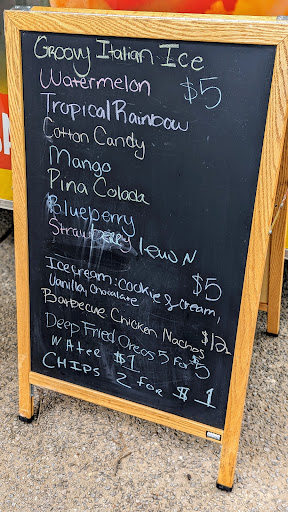 Groovy Italian Ice
Watermelon $5
Tropical Rainbow
Cotton Candy
Mango
Pina Colada
Blueberry
Strawberry lemon
Ice cream: cookies & cream, $5
Vanilla, Chocolate
Barbecue Chicken Nachos $12
Deep Fried Oreos 5 for $5
Water $1
CHIPS 2 FOR $1